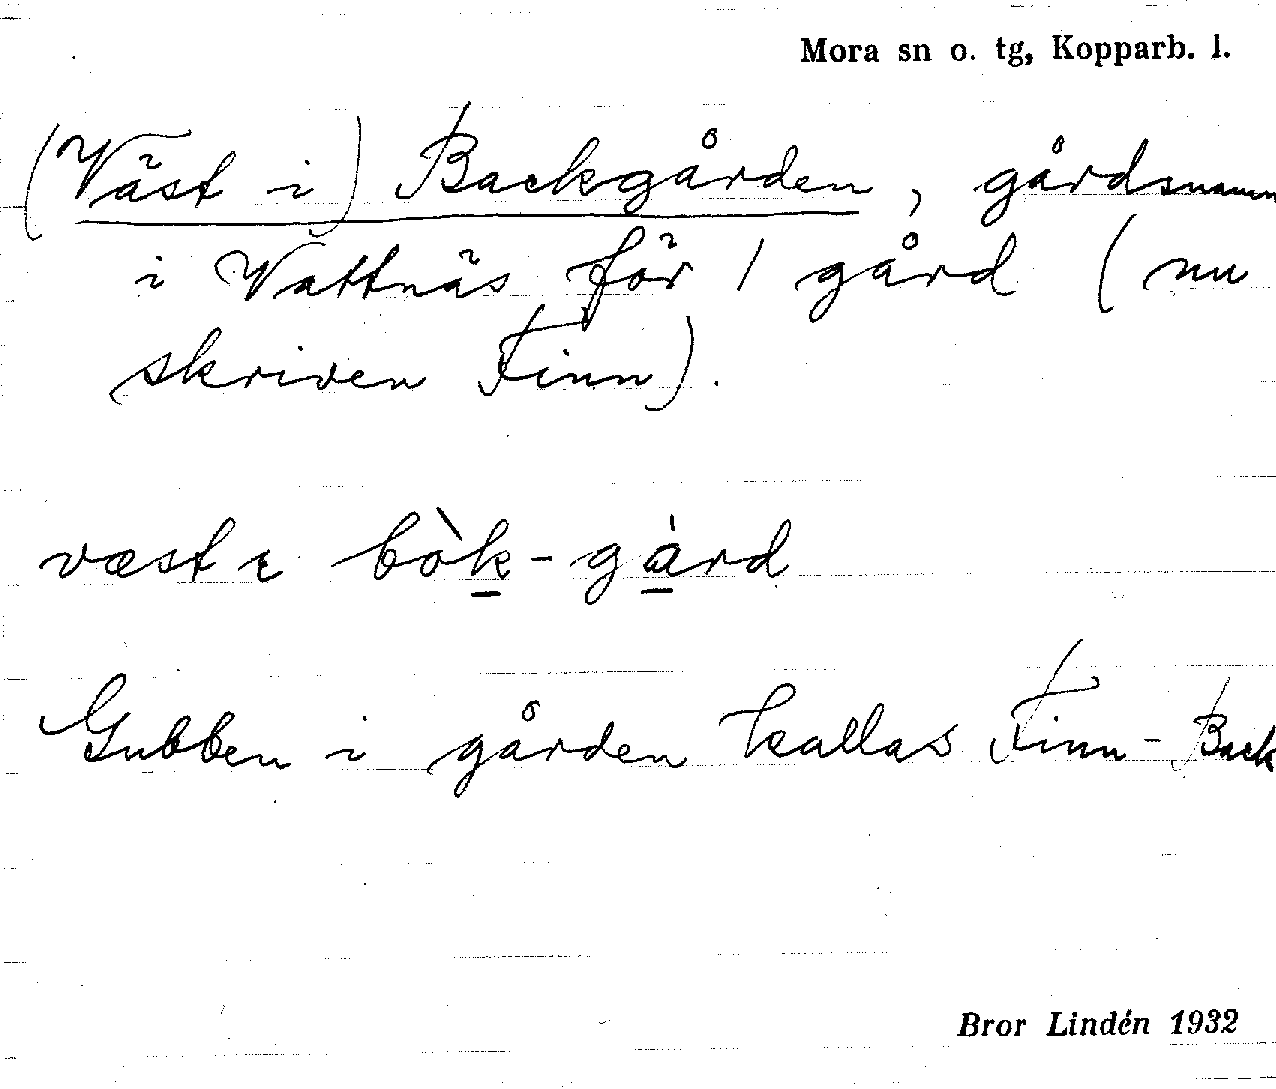 Mora sn o. tg, Kopparb. l.
(Väst i) Backgården, gårdsnamn
i Vattnäs för 1 gård (nu
skriven Finn).
væst ɩ bòk-gàrd
Gubben i gården kallas Finn-Back
Bror Lindén 1932